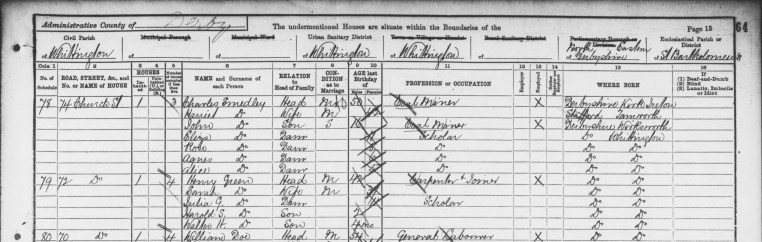 Administrative County of Derby The undermentioned Houses are situate within the Boundaries of the Page 15 64
Civil Parish Municipal Borough Municipal Ward Urban Sanitary District Town or Village or Hamlet Rural Sanitary District Parliamentary Borough or Division Ecclesiastical Parish or District
of Whittington of of of Whittington of of of North Eastern Derbyshire of St Bartholomew
Cols. 1 2 3 4 5 6 7 8 9 10 11 12 13 14 15 16
No. of Schedule ROAD, STREET, &c., and No. or NAME of HOUSE HOUSES NAME and Surname of each Person RELATION to Head of Family CONDITION as to Marriage AGE last Birthday of PROFESSION or OCCUPATION Employer Employed WHERE BORN (1) Deaf-and-Dumb (2) Blind (3) Lunatic, Imbecile or Idiot
78 74 Church St 1 3 Charles Smedley Head M 50 Coal Miner X Derbyshire
Harriet Do Wife M Stafford Tamworth
John Do Son S Coal Miner X Derbyshire Wirksworth
Eliza Do Daur Scholar Do Whittington
Rose Do Daur Do Do Do
Agnes Do Daur Do Do Do
Alice Do Daur Do Do Do
79 72 Do 1 4 Henry Green Head M 42 Carpenter & Joiner X Do Do
Sarah Do Wife M Do Do
Julia G. Do Daur Scholar Do Do
Harold S. Do Son 2 Do Do
Walter H. Do Son Do Do
80 70 Do 1 4 William Doe Head M 54 General Labourer X Do Do